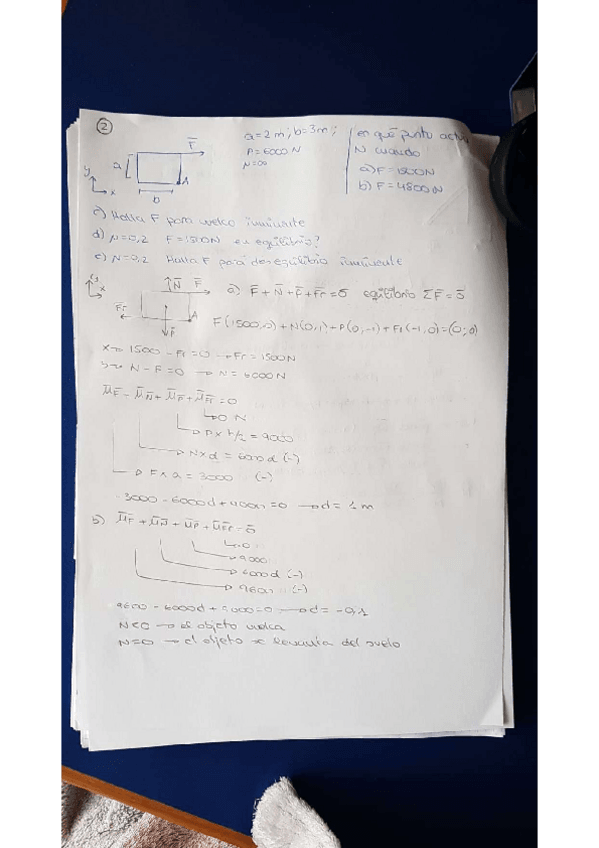 ②
a=2m; b=3m; en qué punto actúa
P=6000N N cuando
μ=∞ a) F=1500N
b) F=4800N
F
a
y
x
b
A
c) Halla F para vuelco inminente
d) μ=0,2 F=1500N en equilibrio?
e) μ=0,2 Halla F para desequilibrio inminente
y
x
N F
Fr A
P
a) F+N+P+Fr=0 equilibrio ΣF=0
F(1500,0)+N(0,1)+P(0,-1)+Fr(-1,0)=(0;0)
x→ 1500-Fr=0 →Fr=1500N
y→ N-P=0 → N=6000N
M_F + M_N + M_P + M_Fr = 0
0 N
P x b/2 = 9000
N x d = 6000d (-)
F x a = 3000 (-)
-3000-6000d+9000=0 → d= 1m
b) M_F + M_N + M_P + M_Fr = 0
0
9000
6000d (-)
9600 (-)
9600-6000d+9000=0 → d= -0,1
N<0 → el objeto vuelca
N=0 → el objeto se levantaría del suelo